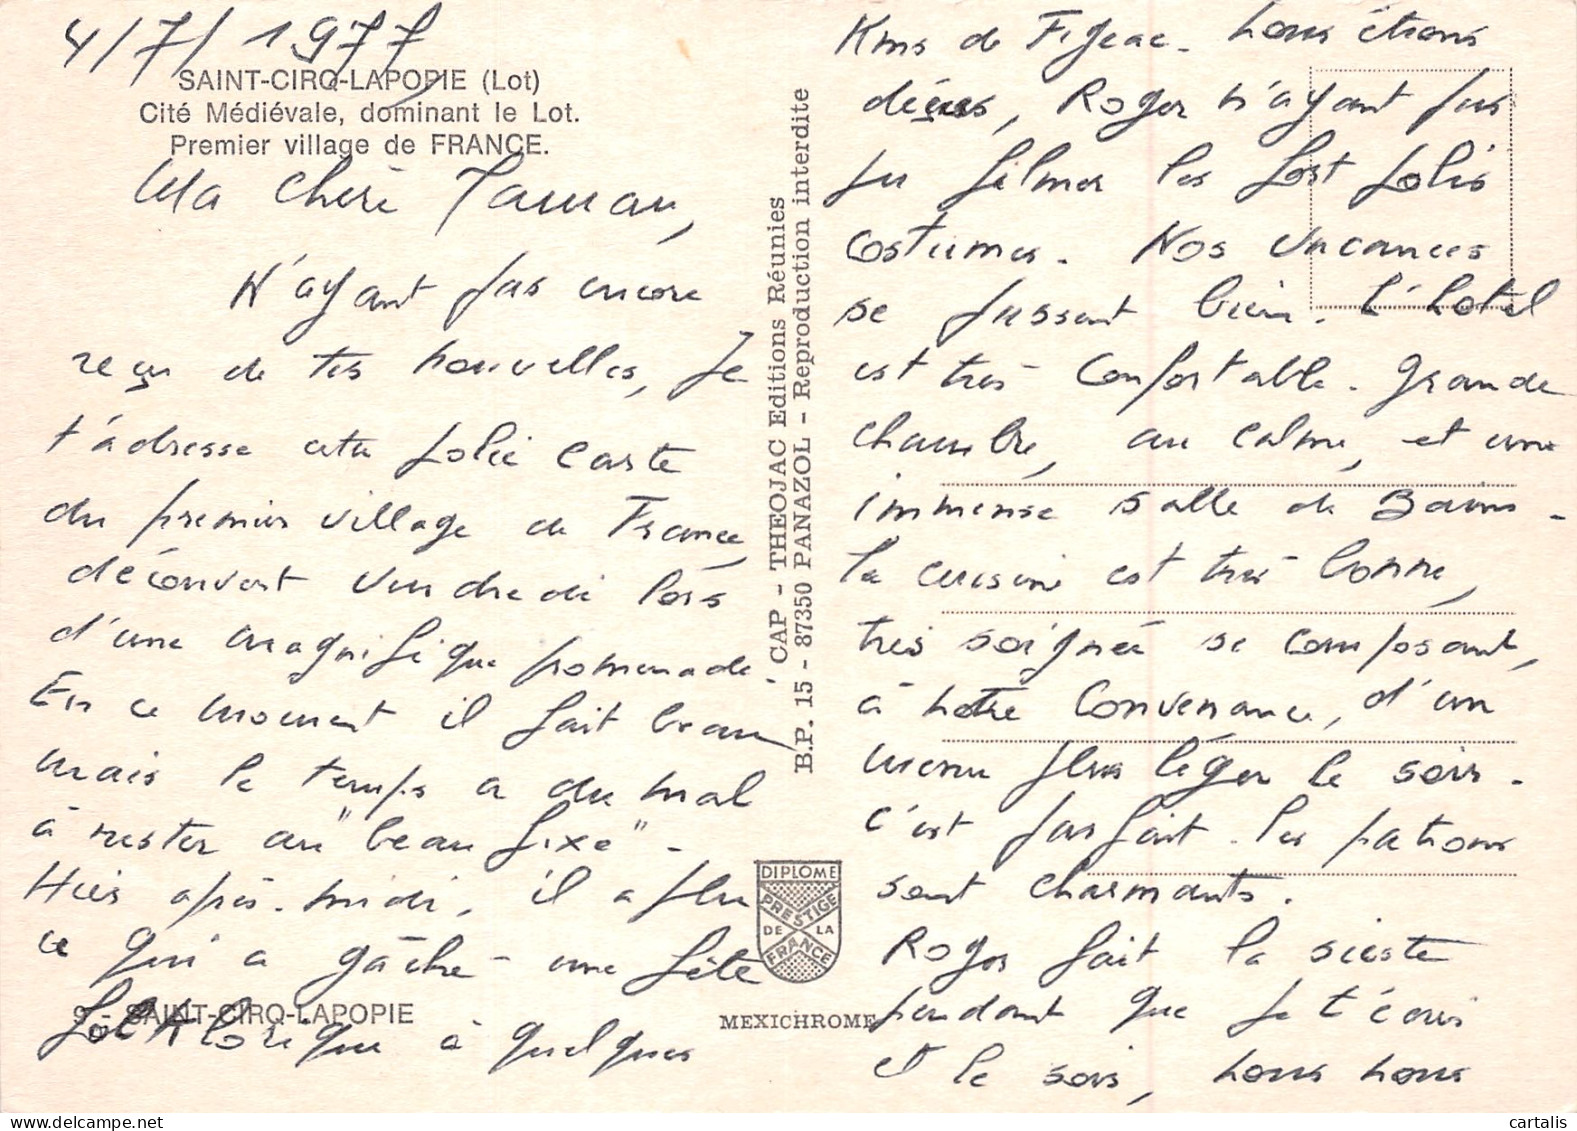 4/7/1977
SAINT-CIRQ-LAPOPIE (Lot)
Cité Médiévale, dominant le Lot.
Premier village de FRANCE.
Ma chère Maman,
N'ayant pas encore
reçu de tes nouvelles, je
t'adresse cette jolie carte
du premier village de France,
découvert vendredi lors
d'une magnifique promenade.
En ce moment il fait beau
mais le temps a du mal
à rester au "beau fixe".
Hier après-midi, il a plu
ce qui a gâché une fête
folklorique à quelques
9 - SAINT-CIRQ-LAPOPIE
CAP - THEOJAC Editions Réunies
B.P. 15 - 87350 PANAZOL - Reproduction interdite
DIPLOME
PRESTIGE
DE LA
FRANCE
MEXICHROME
Kms de Figeac. Nous étions
déçus, Roger n'ayant pas
pu filmer les fort jolis
costumes. Nos vacances
se passent bien. L'hôtel
est très confortable. Grande
chambre, au calme, et une
immense salle de Bains.
La cuisine est très bonne,
très soignée se composant,
à notre convenance, d'un
menu plus léger le soir.
C'est parfait. Les patrons
sont charmants.
Roger fait la sieste
pendant que je t'écris
et le soir, nous nous
cartalis